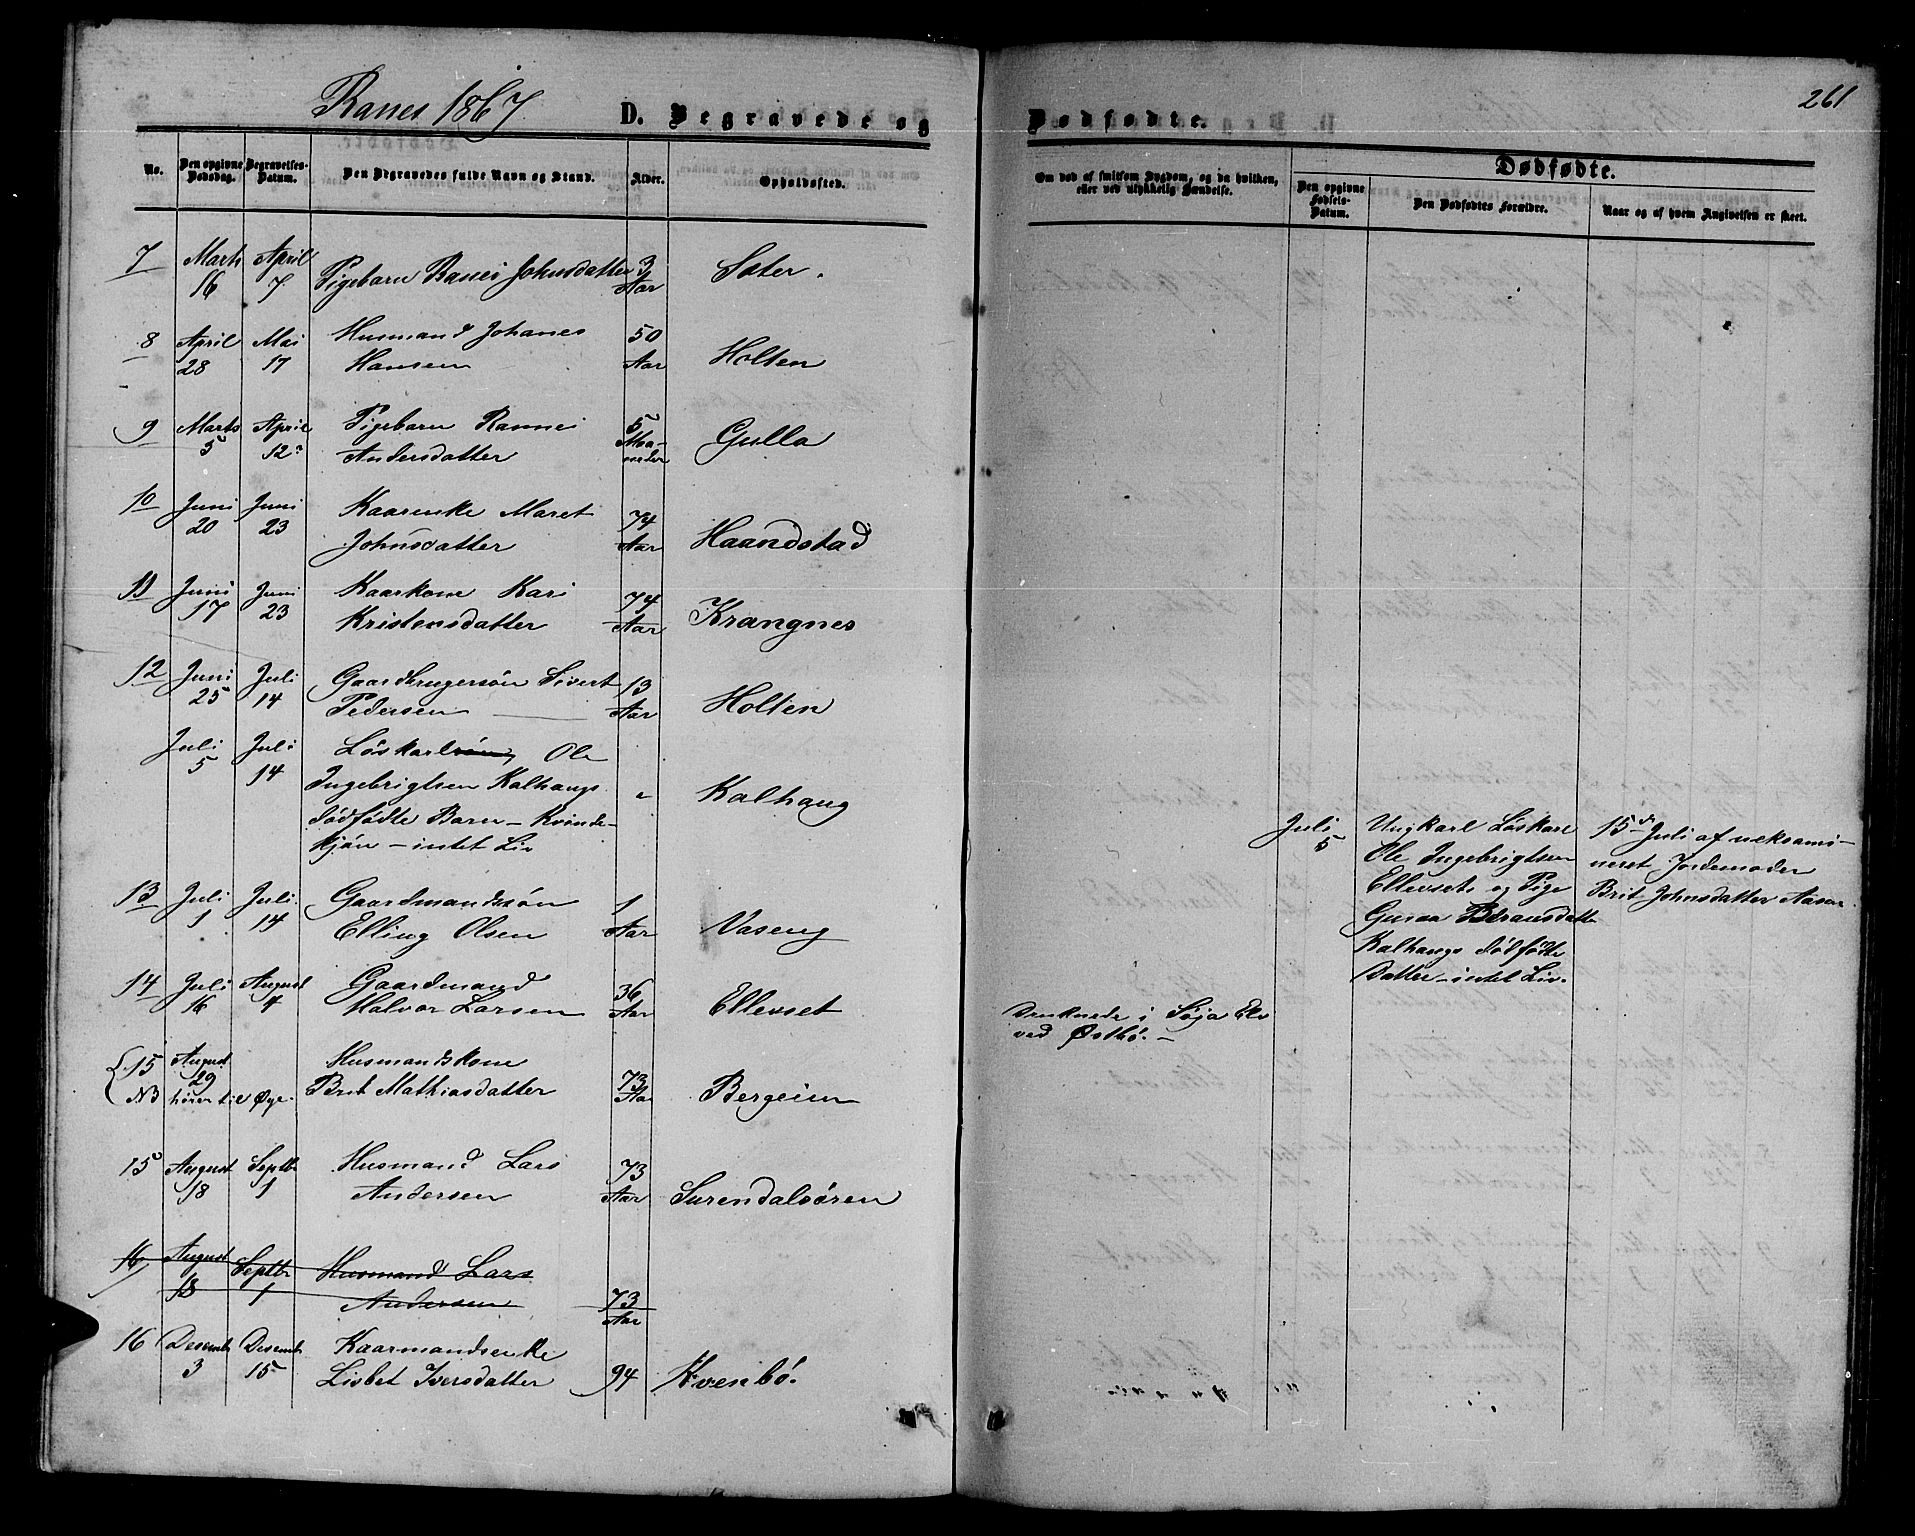 Ranes 1867.
D. Begravede og
Dødfødte.
261
No.
Den opgivne Dødsdag.
Begravelses-Datum.
Den Begravedes fulde Navn og Stand.
Alder.
Opholdssted.
Om død af smitsom Sygdom, og da hvilken,
eller ved ulykkelig Hændelse.
Dødfødte.
Den opgivne Fødsels-Datum.
Den Dødfødtes Forældre.
Naar og af hvem Angivelsen er skeet.
7 Marts 16 April 7 Pigebarn Ranei Johnsdatter 3 Aar Sæter.
8 April 28 Mai 17 Husmand Johanes
Hansen 50 Aar Holten
9 Marts 5 April 12 Pigebarn Rannei
Andersdatter 5 Maaneder Gulla
10 Juni 20 Juni 23 Kaarenke Maret
Johnsdatter 74 Aar Haandstad
11 Juni 17 Juni 23 Kaarkone Kari
Kristensdatter 74 Aar Krangnes
12 Juni 25 Juli 14 Gaardbrugersøn Sivert
Pedersen 13 Aar Holten
Juli 5 Juli 14 Løskarlsøn, Ole
Ingebrigtsen Kalhaugs
dødfødte Barn - Kvinde-
kjøn - intet Liv " Kalhaug
Juli 5
Ungkarl Løskarl
Ole Ingebrigtsen
Ellevset og Pige
Guraa
Kalhaugs dødfødte
Datter - intet Liv.
15de Juli af ueksami-
neret Jordemoder
Brit Johnsdatter
13 Juli 1 Juli 14 Gaardmandssøn
Elling Olsen 1 Aar Vaseng
14 Juli 16 August 4 Gaardmand
Halvor Larsen 36 Aar Ellevset
Druknede i Søja Elv
ved Østbø. -
15 August 29 Husmandskone
NB hører til Øye. Brit Mathiasdatter 73 Aar Bergeim
15 August 18 Septbr 1 Husmand Lars
Andersen 73 Aar Surendalsøren
16 August 18 Septbr 1 Husmand Lars
Andersen 73 Aar
16 Desemb 3 Desemb 15 Kaarmandsenke
Lisbet Iversdatter 94 Kvenbø.